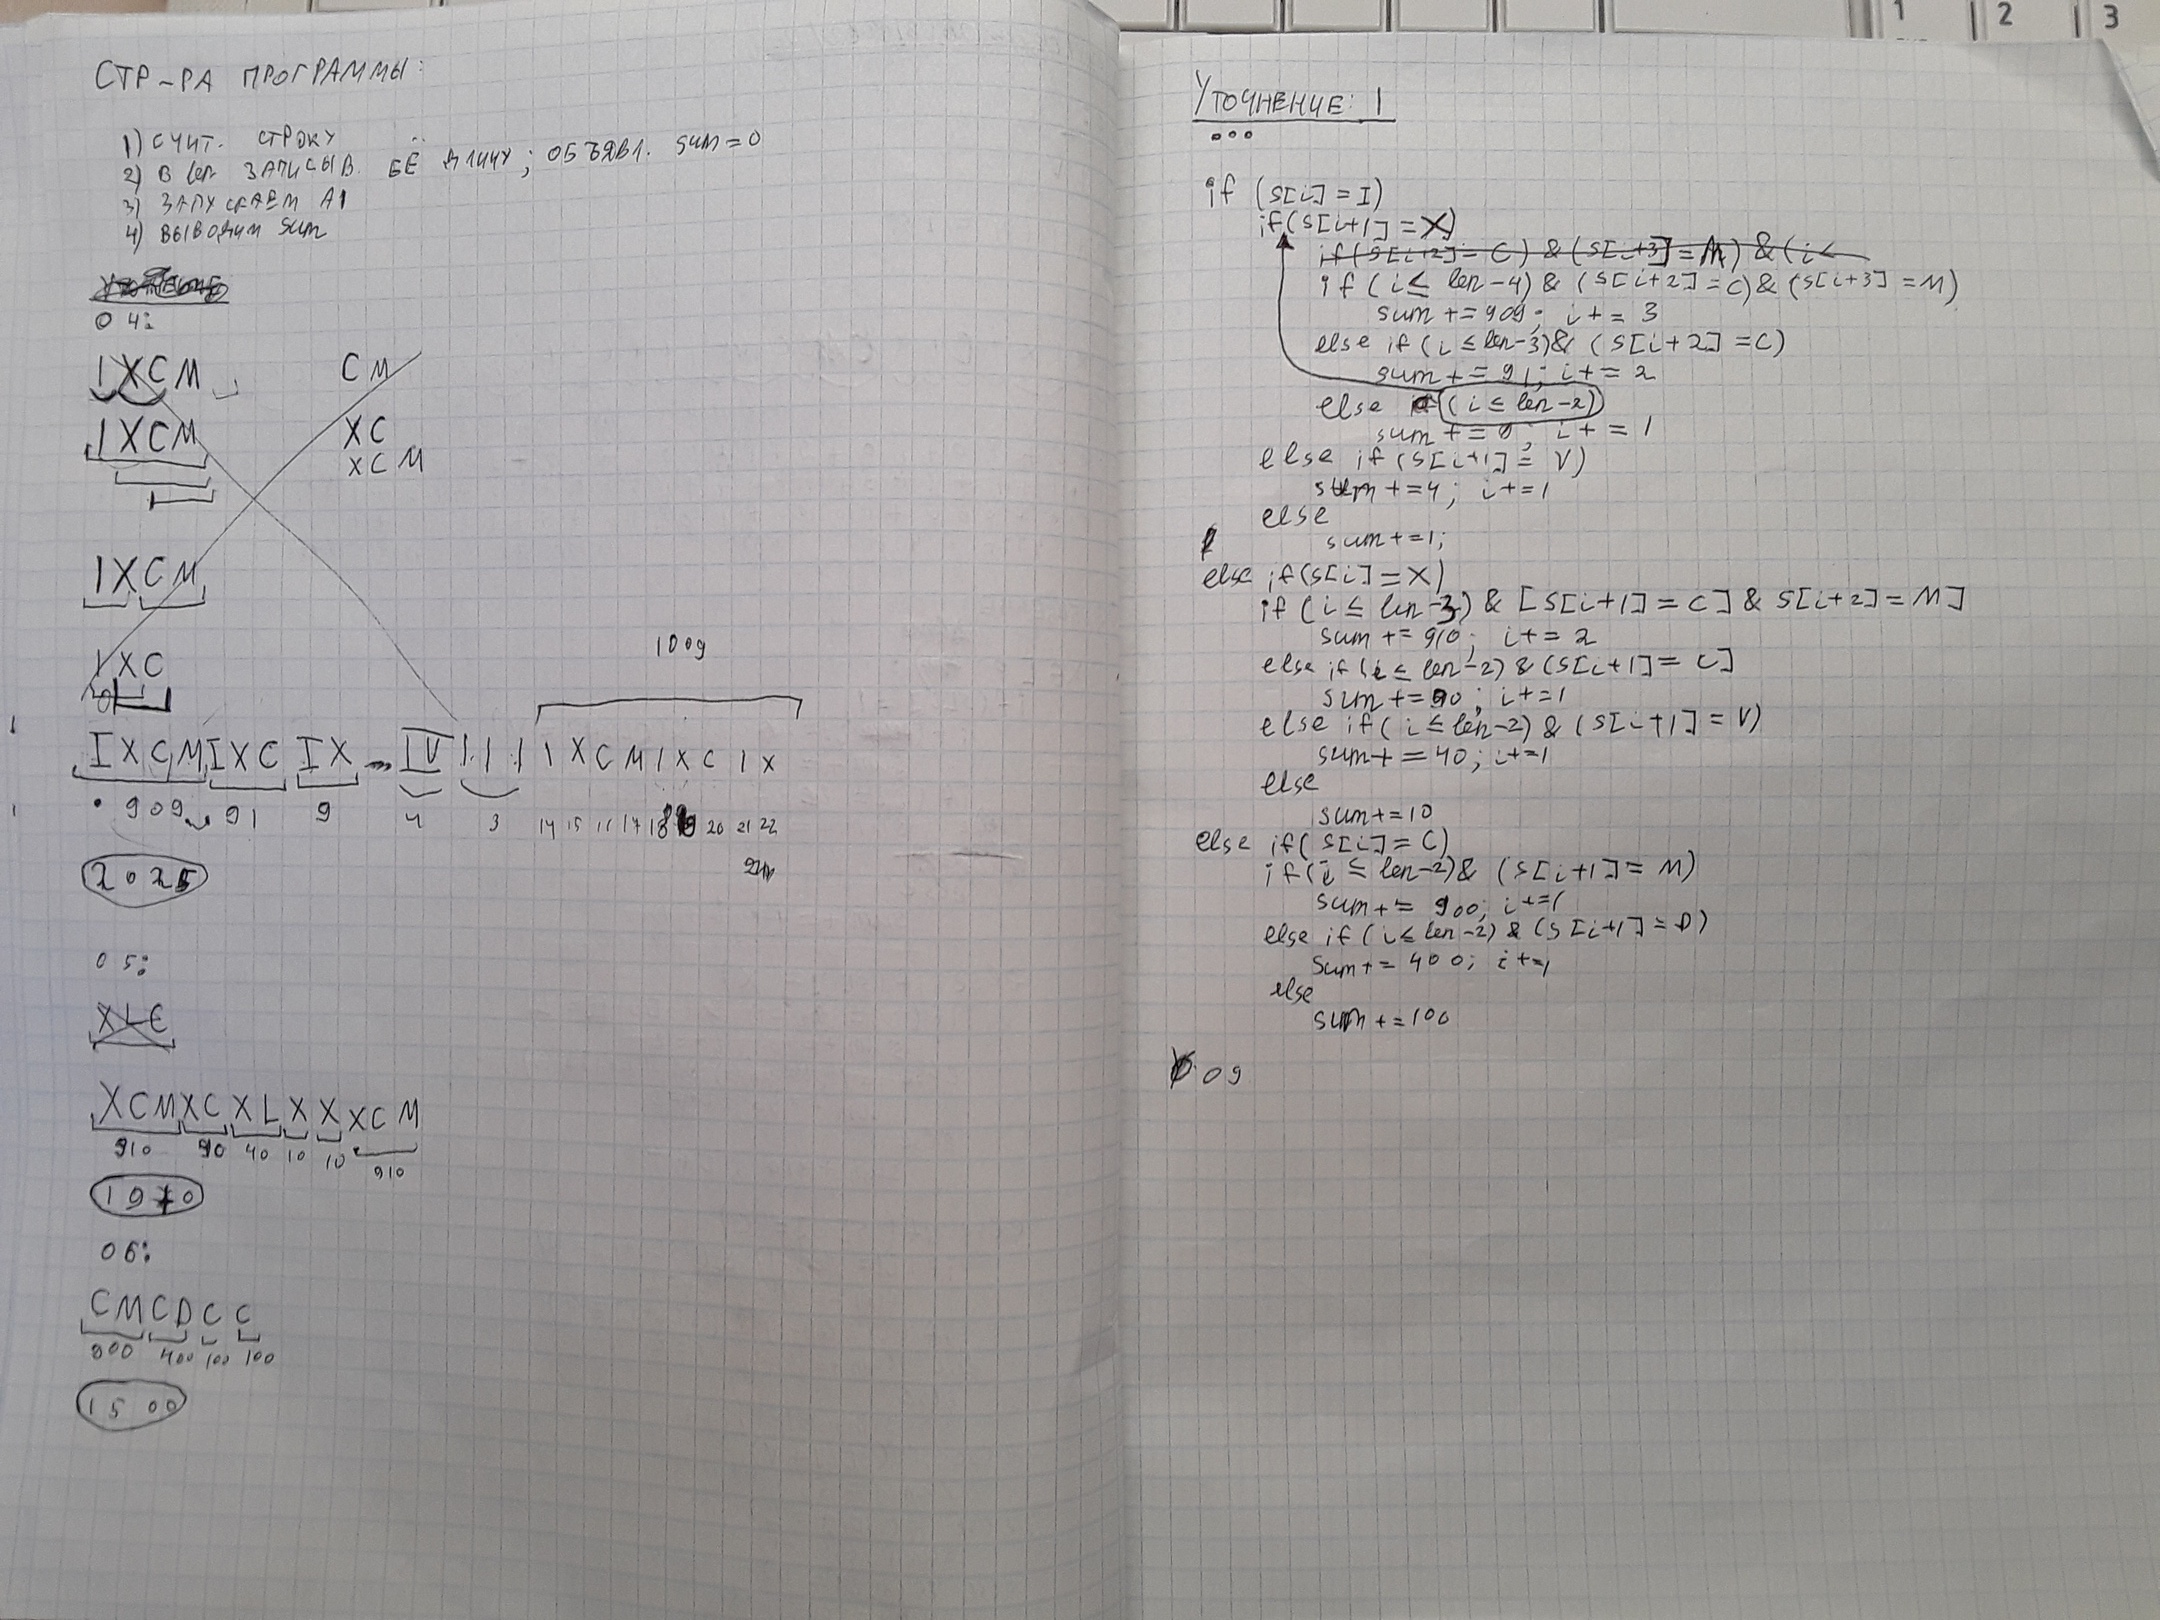 СТР-РА ПРОГРАММЫ:
1) СЧИТ. СТРОКУ
2) В len ЗАПИСЫВ. ЕЁ ДЛИНУ; ОБЪЯВЛ. sum=0
3) ЗАПУСКАЕМ А1
4) ВЫВОДИМ sum
04:
IXCM CM
IXCM XC
XCM
IXCM
IXC
1009
IXCM IXC IX IV I I I I X C M I X C I X
909 91 9 4 3 14 15 16 17 18 19 20 21 22
2025
05:
XLC
XCM XC XL X X XCM
910 90 40 10 10 910
1970
06:
CM CD C C
900 400 100 100
1500
УТОЧНЕНИЕ: 1
...
if (s[i] = I)
if (s[i+1] = X)
if (s[i+2] = C) & (s[i+3] = M) & (i<
if (i ≤ len-4) & (s[i+2] = C) & (s[i+3] = M)
sum += 909; i += 3
else if (i ≤ len-3) & (s[i+2] = C)
sum += 91; i += 2
else (i ≤ len-2)
sum += 9; i += 1
else if (s[i+1] = V)
sum += 4; i += 1
else
sum += 1;
else if (s[i] = X)
if (i ≤ len-3) & [s[i+1] = C] & s[i+2] = M]
sum += 910; i += 2
else if (i ≤ len-2) & (s[i+1] = C]
sum += 90; i += 1
else if (i ≤ len-2) & (s[i+1] = V)
sum += 40; i += 1
else
sum += 10
else if (s[i] = C)
if (i ≤ len-2) & (s[i+1] = M)
sum += 900; i += 1
else if (i ≤ len-2) & (s[i+1] = D)
sum += 400; i += 1
else
sum += 100
09